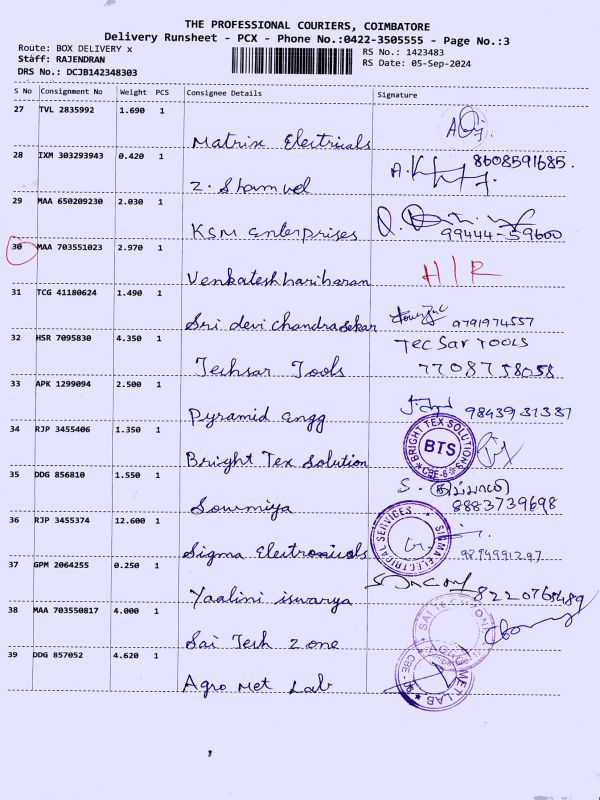 THE PROFESSIONAL COURIERS, COIMBATORE
Delivery Runsheet - PCX - Phone No.:0422-3505555 - Page No.:3
Route: BOX DELIVERY x
RS No.: 1423483
Staff: RAJENDRAN
RS Date: 05-Sep-2024
DRS No.: DCJB142348303
S No Consignment No Weight PCS Consignee Details Signature
27 TVL 2835992 1.690 1
Matrix Electricals
28 IXM 303293943 0.420 1 8608591685.
Z. Shamuel
29 MAA 650209230 2.030 1
KSM Enterprises 99444-59600
30 MAA 703551023 2.970 1
Venkateshhariharan H/R
31 TCG 41180624 1.490 1
Sri devi chandrasekar 9791974557
32 HSR 7095830 4.350 1 TEC SAR TOOLS
Techsar Tools 7708758058
33 APK 1299094 2.500 1
Pyramid engg 9843931387
34 RJP 3455406 1.350 1 BRIGHT TEX SOLUTIONS
BTS
CBE-6
Bright Tex Solution
35 DDG 856810 1.550 1
Sowmiya 8883739698
36 RJP 3455374 12.600 1 SIGMA ELECTRICAL SERVICES
Sigma Electronicals
37 GPM 2064255 0.250 1
Yaalini iswarya 8220765489
38 MAA 703550817 4.000 1 SAI TECH ZONE
Sai Tech Zone
39 DDG 857052 4.620 1 AGRO MET LAB
CBE
Agro Met Lab